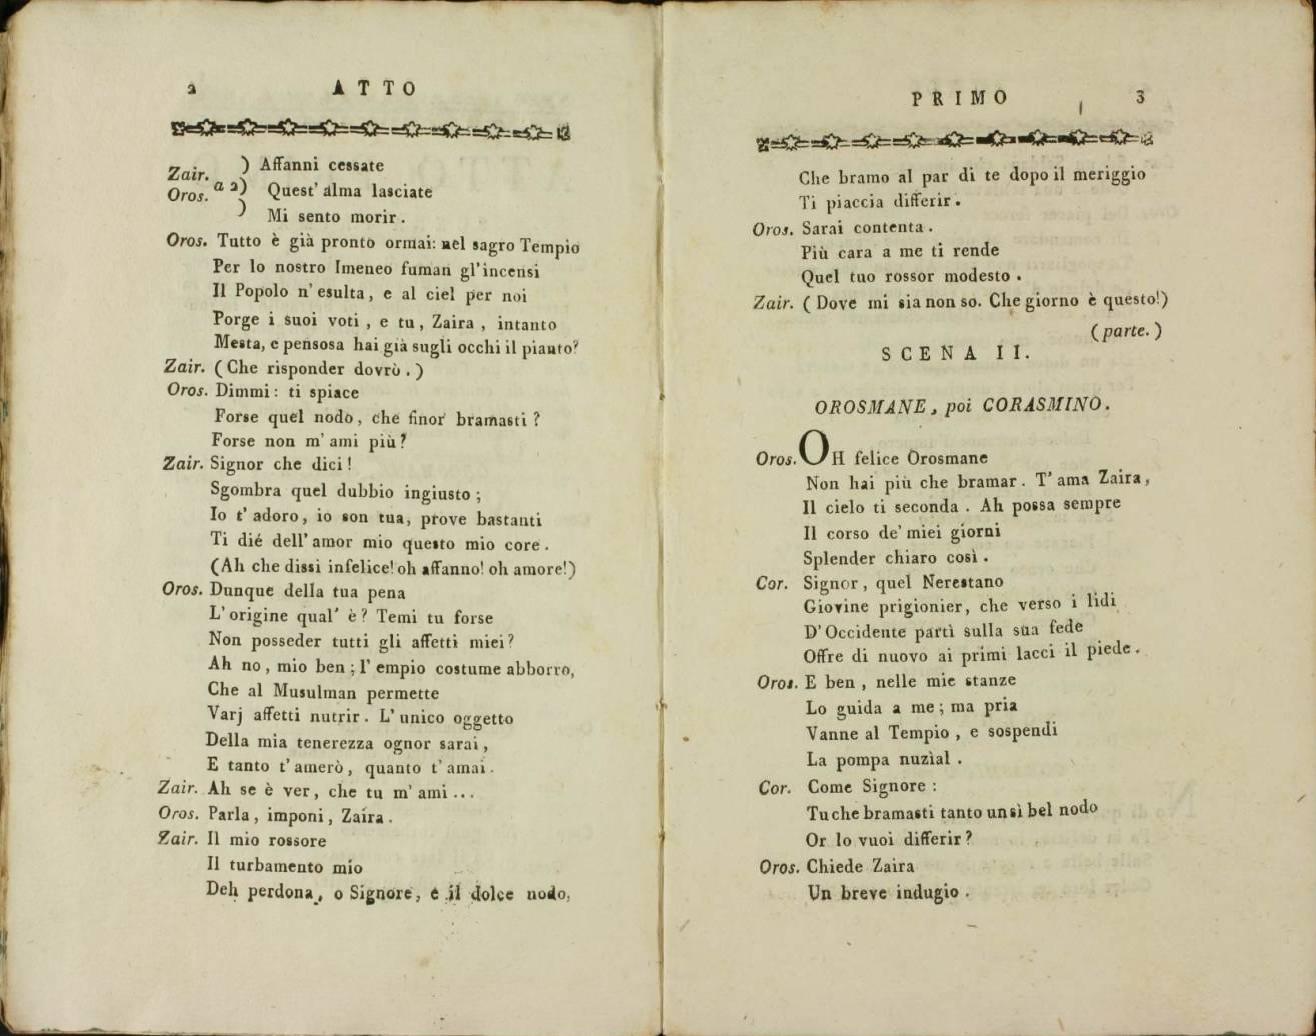 2 ATTO
Zair. ) Affanni cessate
Oros. a 2) Quest' alma lasciate
) Mi sento morir.
Oros. Tutto è già pronto ormai: nel sagro Tempio
Per lo nostro Imeneo fuman gl'incensi
Il Popolo n'esulta, e al ciel per noi
Porge i suoi voti, e tu, Zaira, intanto
Mesta, e pensosa hai già sugli occhi il pianto?
Zair. (Che risponder dovrò.)
Oros. Dimmi: ti spiace
Forse quel nodo, che finor bramasti?
Forse non m'ami più?
Zair. Signor che dici!
Sgombra quel dubbio ingiusto;
Io t'adoro, io son tua, prove bastanti
Ti dié dell'amor mio questo mio core.
(Ah che dissi infelice! oh affanno! oh amore!)
Oros. Dunque della tua pena
L'origine qual' è? Temi tu forse
Non posseder tutti gli affetti miei?
Ah no, mio ben; l'empio costume abborro,
Che al Musulman permette
Varj affetti nutrir. L'unico oggetto
Della mia tenerezza ognor sarai,
E tanto t'amerò, quanto t'amai.
Zair. Ah se è ver, che tu m'ami...
Oros. Parla, imponi, Zaira.
Zair. Il mio rossore
Il turbamento mio
Deh perdona, o Signore, e il dolce nodo,
PRIMO 3
Che bramo al par di te dopo il meriggio
Ti piaccia differir.
Oros. Sarai contenta.
Più cara a me ti rende
Quel tuo rossor modesto.
Zair. (Dove mi sia non so. Che giorno è questo!)
(parte.)
SCENA II.
OROSMANE, poi CORASMINO.
Oros. OH felice Orosmane
Non hai più che bramar. T'ama Zaira,
Il cielo ti seconda. Ah possa sempre
Il corso de' miei giorni
Splender chiaro così.
Cor. Signor, quel Nerestano
Giovine prigionier, che verso i lidi
D'Occidente partì sulla sua fede
Offre di nuovo ai primi lacci il piede.
Oros. E ben, nelle mie stanze
Lo guida a me; ma pria
Vanne al Tempio, e sospendi
La pompa nuzial.
Cor. Come Signore:
Tu che bramasti tanto un sì bel nodo
Or lo vuoi differir?
Oros. Chiede Zaira
Un breve indugio.